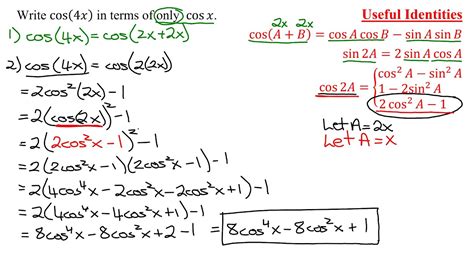 Write cos(4x) in terms of only cos x.
1) cos(4x) = cos(2x+2x)
2) cos(4x) = cos(2(2x))
= 2cos²(2x) - 1
= 2(cos(2x))² - 1
= 2(2cos²x - 1)² - 1
= 2(2cos²x - 1)(2cos²x - 1) - 1
= 2(4cos⁴x - 2cos²x - 2cos²x + 1) - 1
= 2(4cos⁴x - 4cos²x + 1) - 1
= 8cos⁴x - 8cos²x + 2 - 1 = 8cos⁴x - 8cos²x + 1
Useful Identities
2x 2x
cos(A + B) = cos A cos B − sin A sin B
sin 2A = 2 sin A cos A
cos 2A = { cos² A − sin² A
1 − 2sin² A
2 cos² A − 1
Let A = 2x
Let A = x